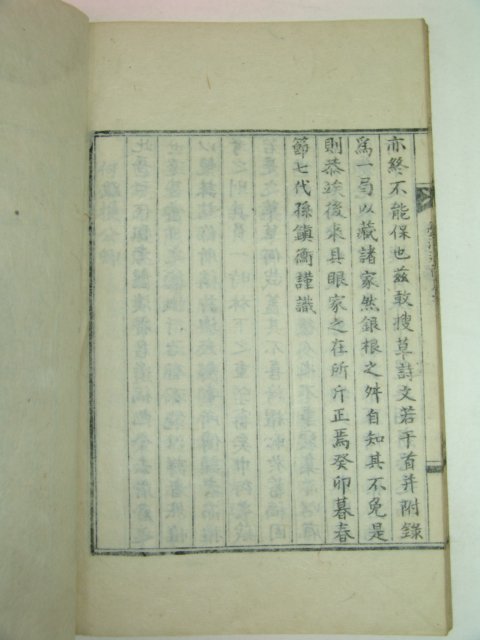 亦終不能保也茲敢搜草詩文若干首并附錄
爲一局以藏諸家然銀根之舛自知其不免是
則恭竢後來具眼家之在所斤正焉癸卯暮春
節七代孫鎭衡謹識